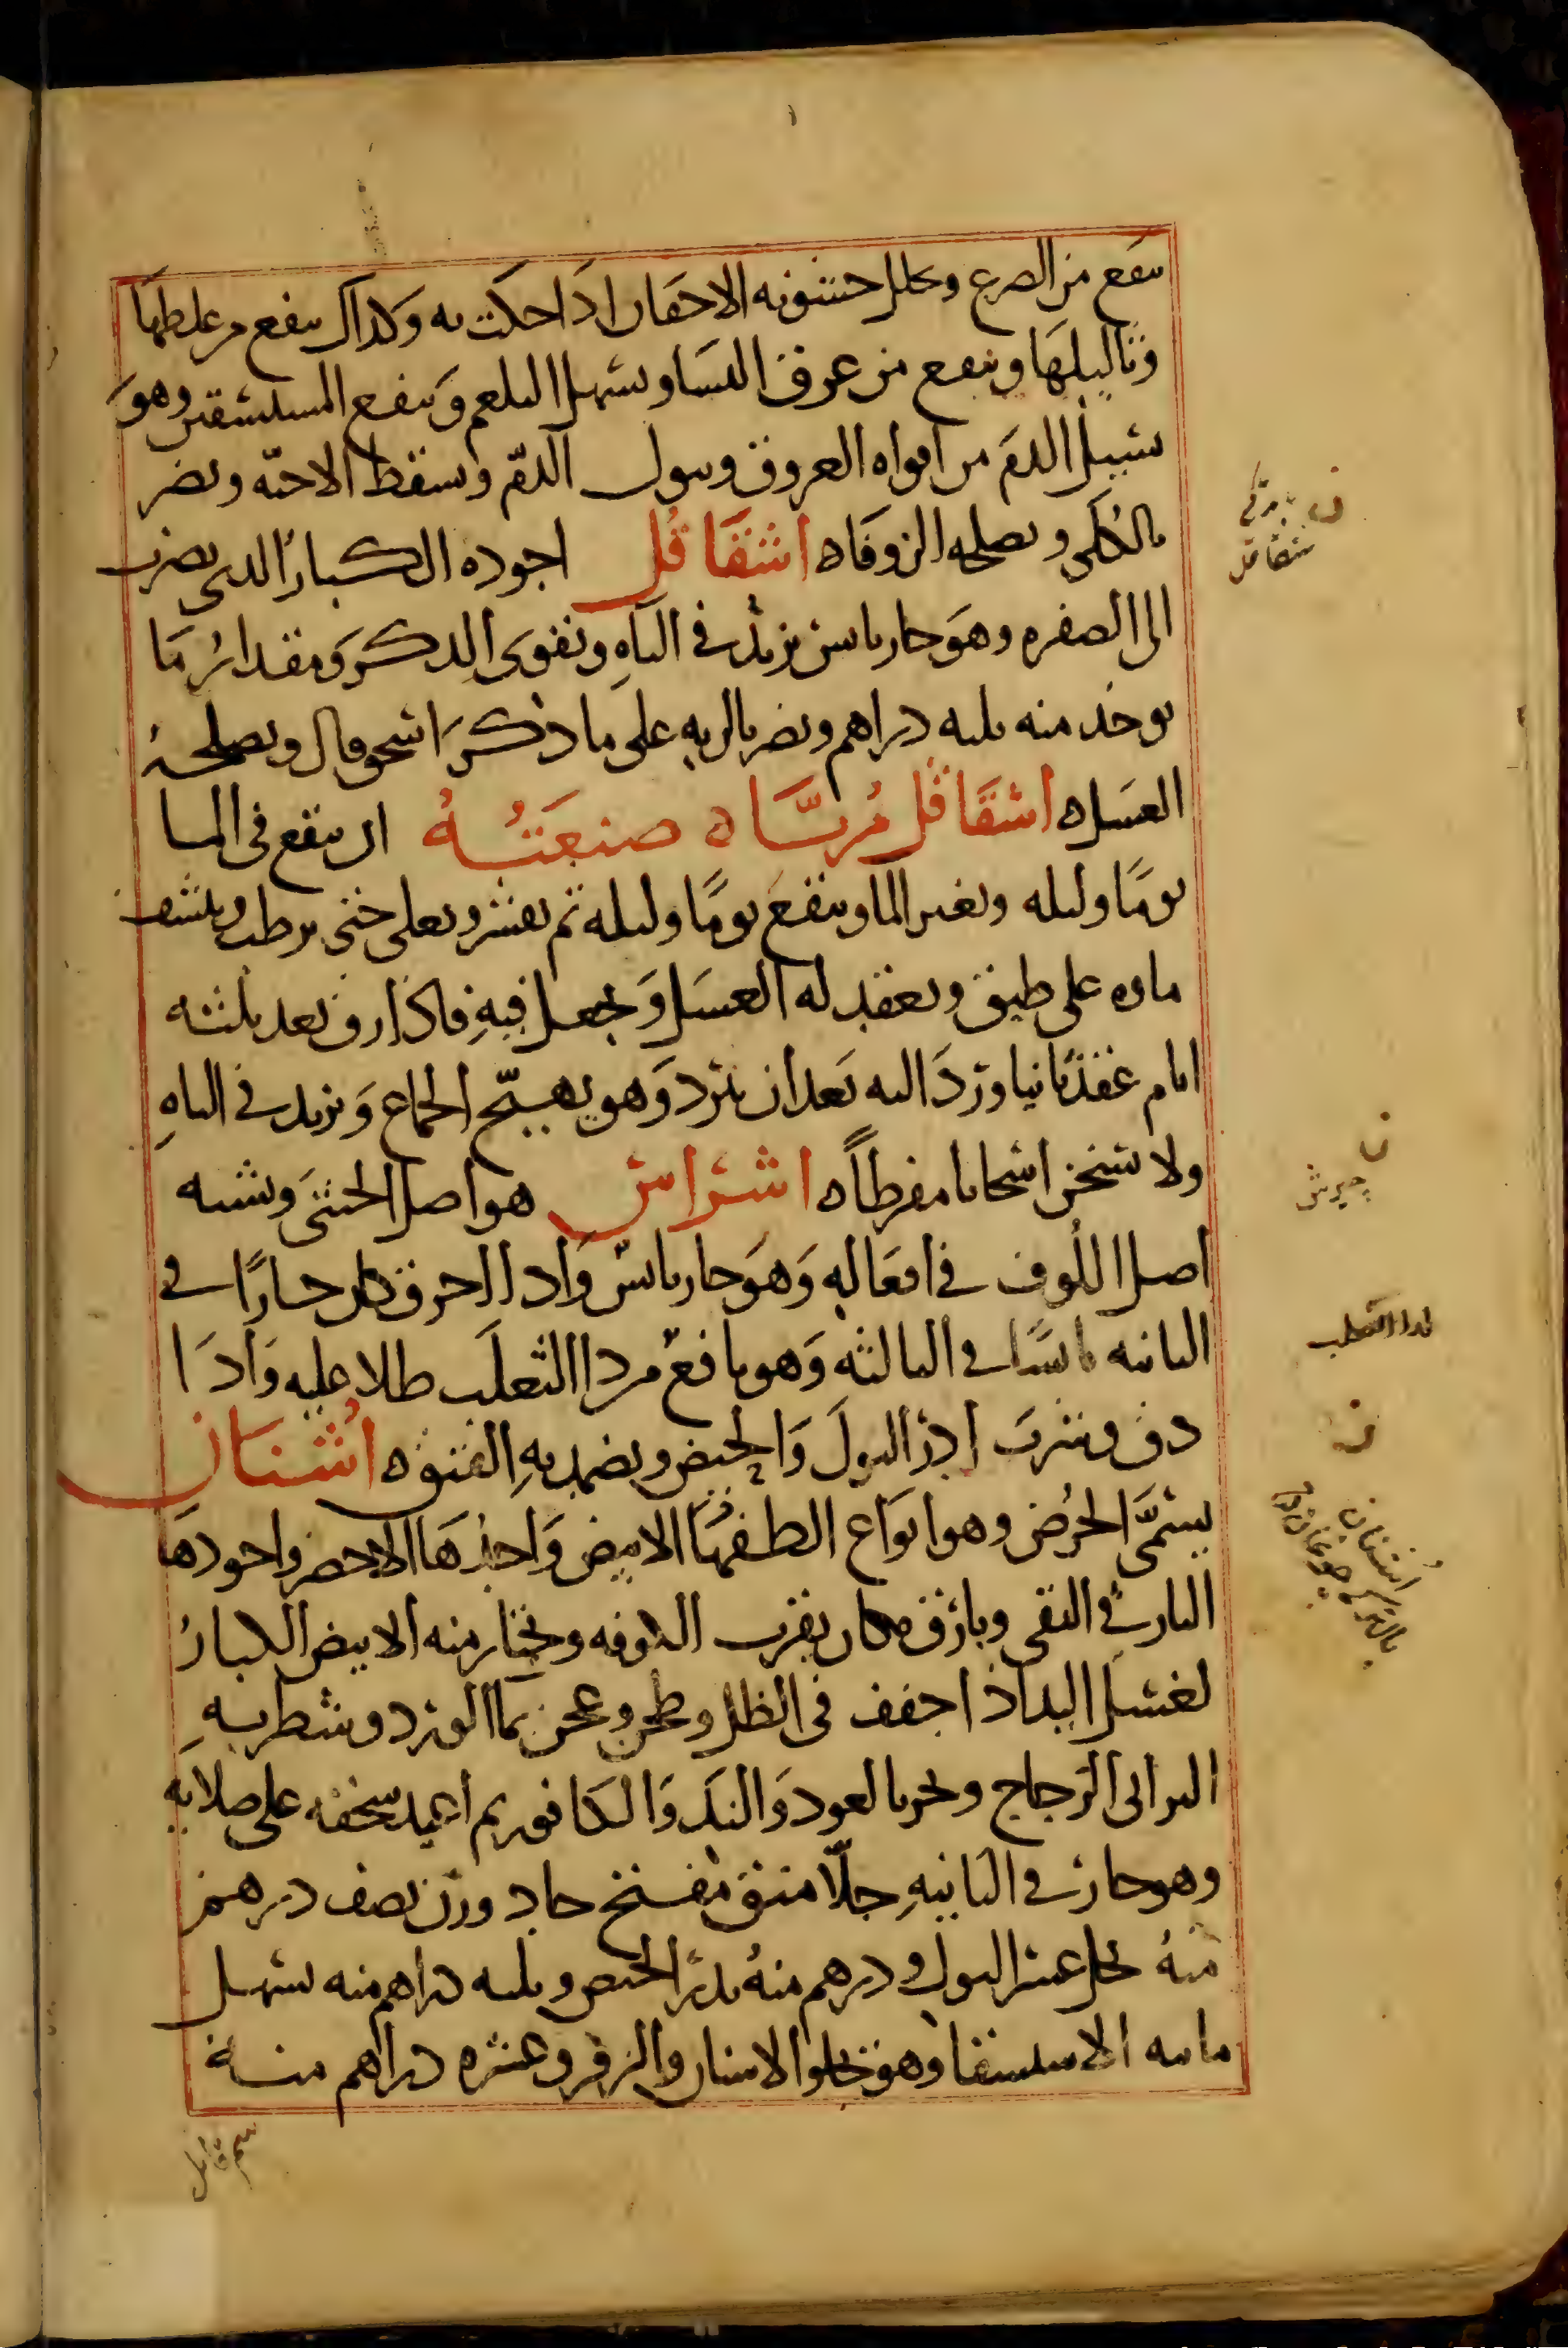 ينفع من الصرع ويحلل خشونه الاجفان اذا حكت به وكذلك ينفع من غلظها
وثاليلها وينفع من عرق النسا ويسهل البلغم وينفع المستسقين وهو
يسيل الدم من افواه العروق وبول الدم ويسقط الاجنه ويضر
بالكلى ويصلحه الزوفا ه اشقاقل اجوده الكبار الذي يضرب
الى الصفره وهو حار يابس يزيد في الباه ويقوى الذكر ومقدار ما
يوخذ منه ثلثه دراهم ويضر بالريه على ما ذكر اسحق قال ويصلحه
العسل ه اشقاقل مربا ه صنعته ان ينقع في الما
يوما وليله ويغير الما وينقع يوما وليله ثم يقشر ويغلى حتى يرطب وينشف
ماوه على طبق ويعقد له العسل ويجعل فيه فاذا رق بعد ثلثه
ايام عقد ثانيا ورد اليه بعد ان يبرد وهو يهيج الجماع ويزيد في الباه
ولا يسخن اسخانا مفرطا ه اشراش هو اصل الخنثى ويشبه
اصل اللوف في افعاله وهو حار يابس واذا احرق كان حارا في
الثانيه يابسا في الثالثه وهو نافع من داا الثعلب طلا عليه واذا
دق وشرب ادر البول والحيض ويضمد به الفتوق ه اشنان
يسمى الحرض وهو انواع الطفها الابيض واحدها الاخضر واجودها
البارقي النقي وبارق مكان بقرب الكوفه ويختار منه الابيض الكبار
لغسل اليد اذا جفف في الظل وطحن وعجن بما الورد وشطر به
البراني الزجاج وبخر بالعود والند والكافور ثم اعيد سحقه على صلايه
وهو حار في الثانيه جلا منق مفتح حاد وزن نصف درهم
منه يحل عسر البول ودرهم منه يدر الحيض وثلثه دراهم منه يسهل
مائيه الاستسقا وهو يجلو الاسنان والزفر وعشره دراهم منه
سم قاتل
ن
تركي
شقاقل
ن
چيرش
لداا الثعلب
ن
اشنان